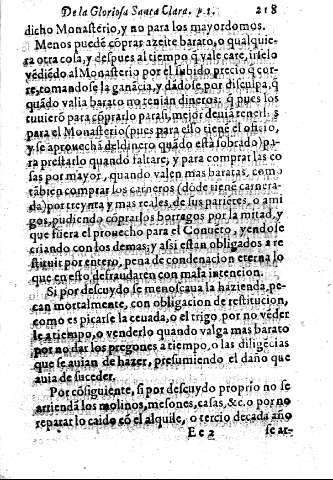 De la Gloriosa Santa Clara. p.1. 218
dicho Monasterio, y no para los mayordomos.
Menos puede cõprar azeite barato, o qualquie-
ra otra cosa, y despues al tiempo q̃ vale caro, irselo
vẽdiẽdo al Monasterio por el subido precio q̃ cor-
re, tomandose la ganãcia, y dãdose por disculpa, q̃
quãdo valia barato no tenian dineros: q̃ pues los
tuuierõ para cõprarlo para si, mejor deuiã tenerlos
para el Monasterio (pues para esso tiene el oficio,
y se aprouechã del dinero quãdo està sobrado) pa-
ra prestarlo quando faltare, y para comprar las co
sas por mayor, quando valen mas baratas, como
tãbien comprar los carneros (dõde tiene carnera-
da) por treynta y mas reales, de sus pariẽtes, o ami
gos, pudiendo cõprarlos borregos por la mitad, y
que fuera el prouecho para el Conuẽto, yendose
criando con los demas; y assi estan obligados a re
stituir por entero, pena de condenacion eterna lo
que en esto defraudaren con mala intencion.
Si por descuydo se menoscaua la hazienda, pe-
can mortalmente, con obligacion de restitucion,
como es picarse la ceuada, o el trigo, por no vẽder
le a tiempo, o venderlo quando valga mas barato
por no dar los pregones a tiempo, o las diligẽcias
que se auian de hazer, presumiendo el daño que
auia de suceder.
Por cõsiguiente, si por descuydo proprio no se
arriendã los molinos, mesones, casas, &c. o por no
reparar lo caido cõ el alquile, o tercio de cada año
Ee 2 se ar-